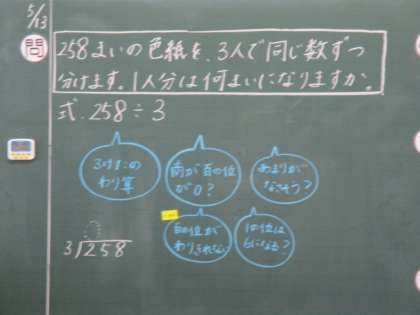 5/13
問
258まいの色紙を、3人で同じ数ずつ
分けます。1人分は何まいになりますか。
式.258÷3
3けたの
わり算
商が百の位
が0?
あまりが
なさそう?
百の位が
わりきれない
一の位は
6になる?
3)258